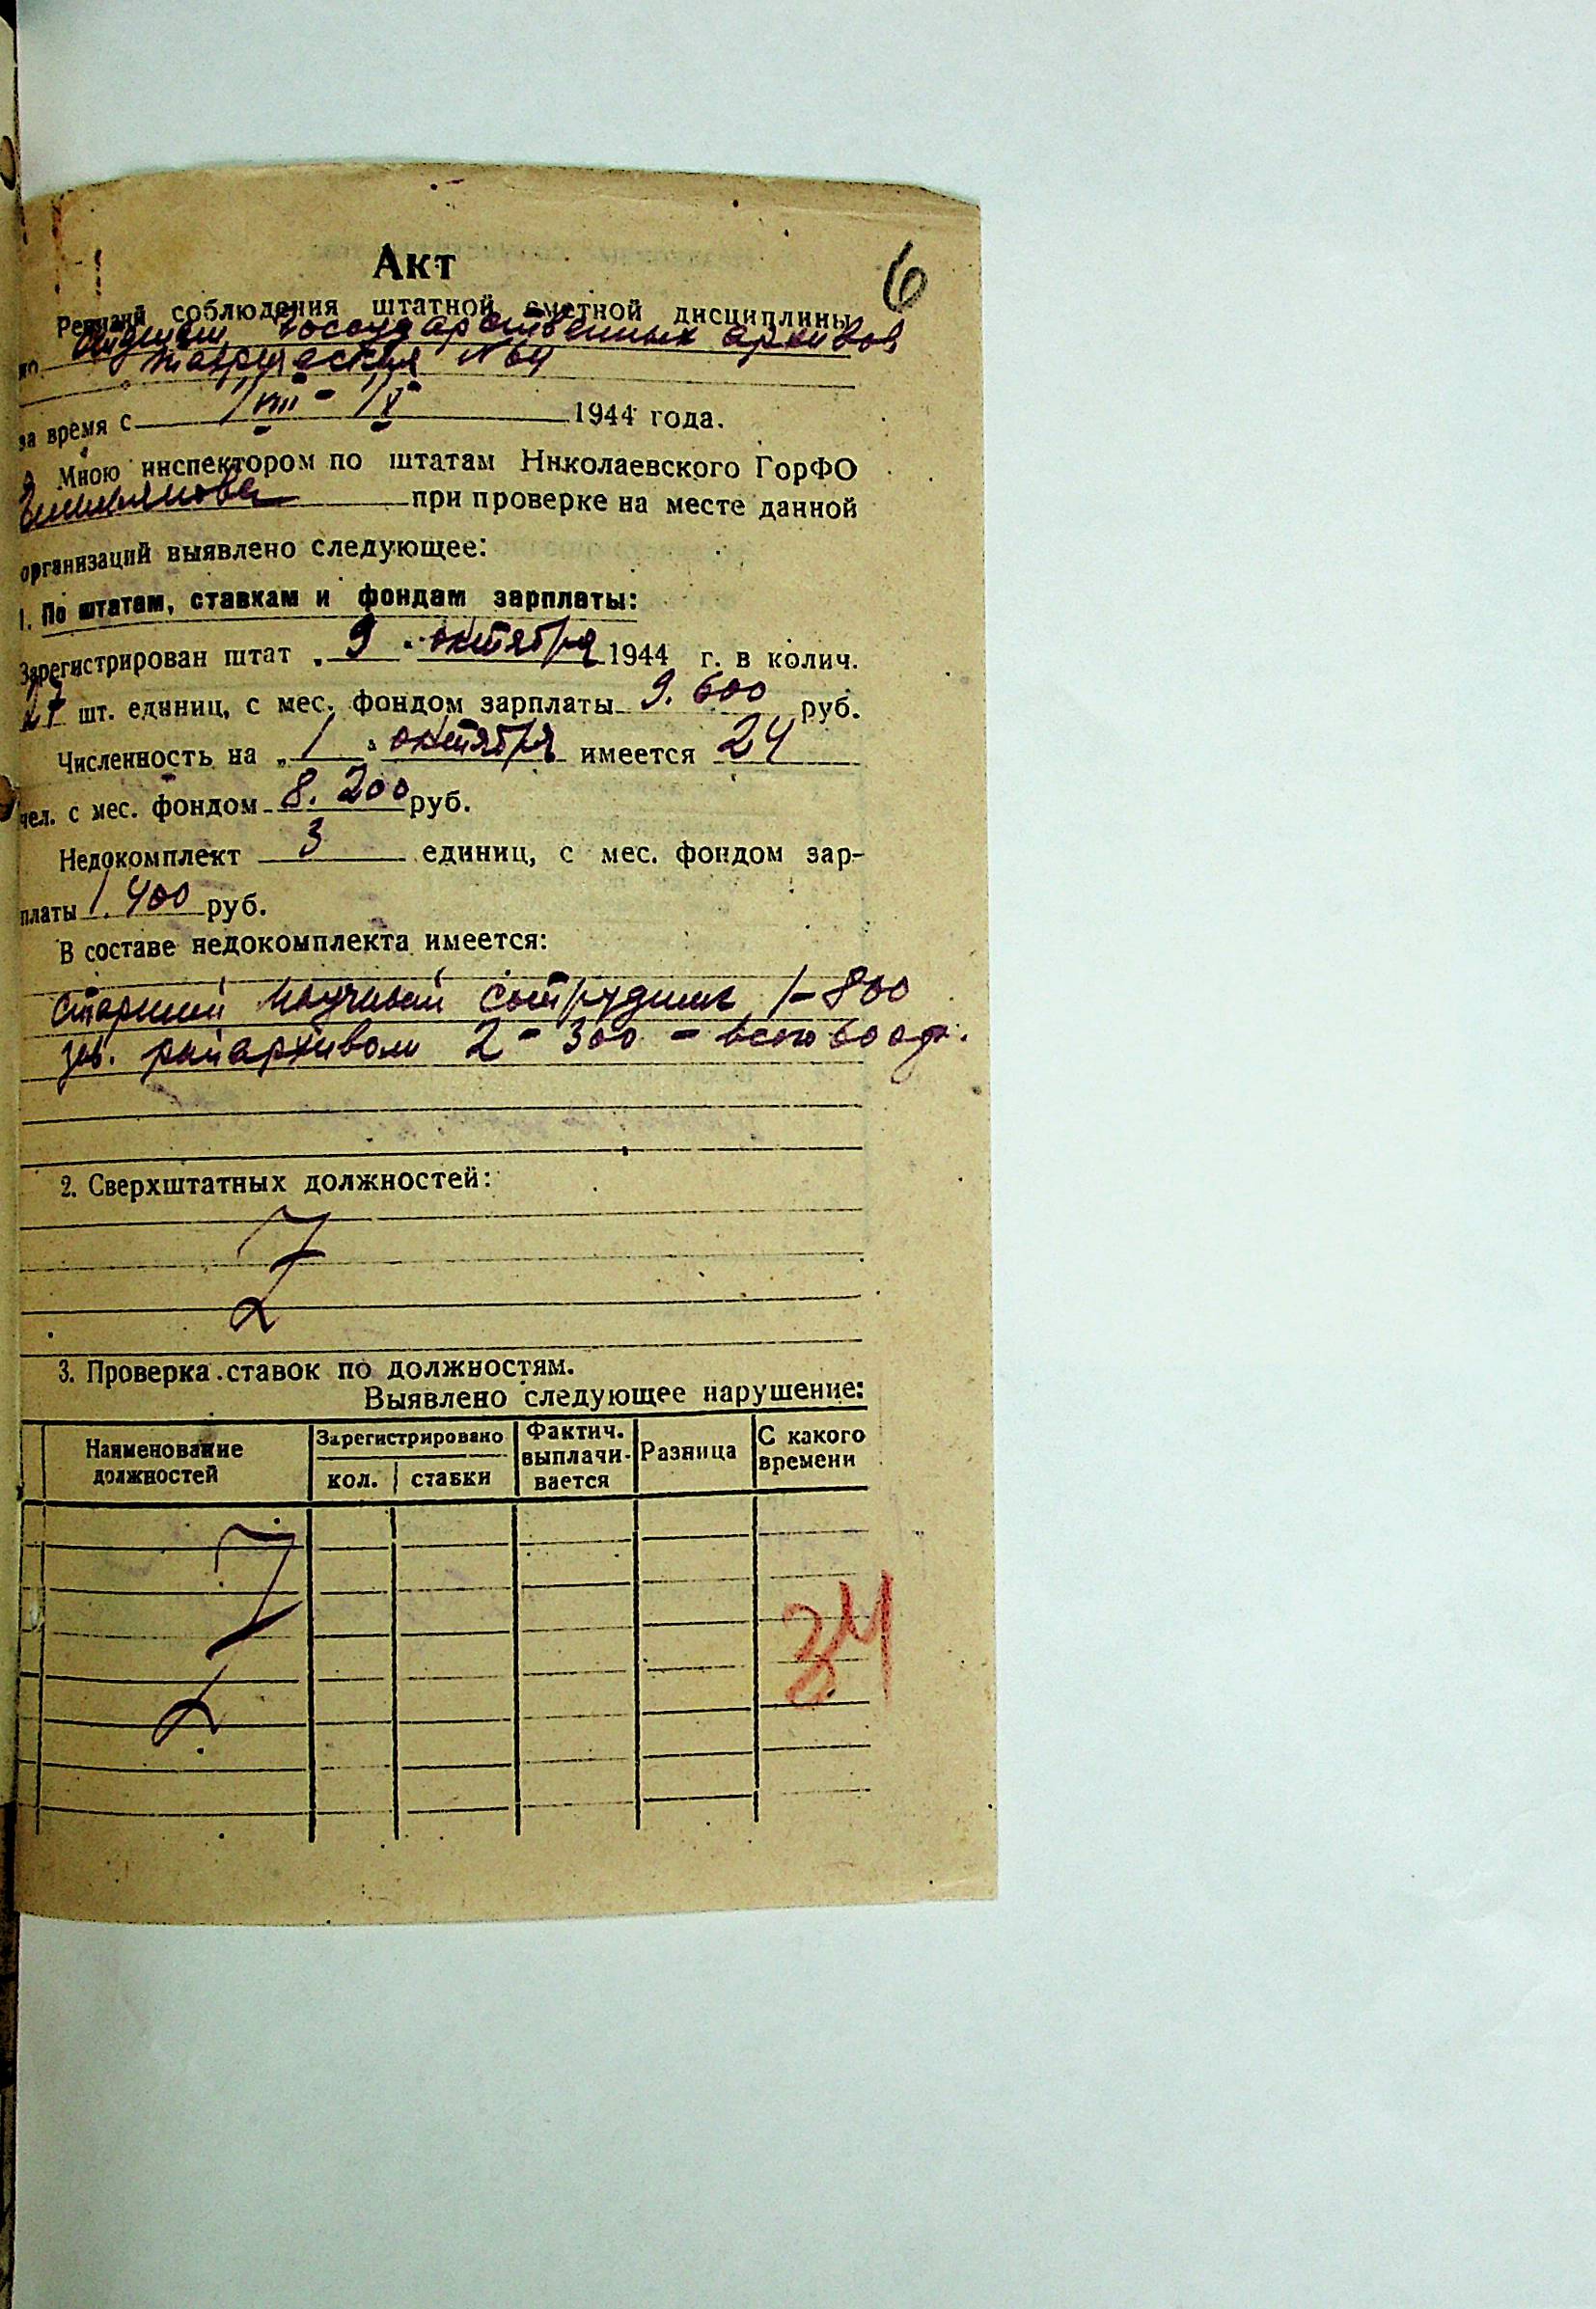 6
Акт
Ревизий соблюдения штатной сметной дисциплины
по Отделам Государственных архивов
№ 64
за время с 1/VIII - 1/X 1944 года.
Мною инспектором по штатам Николаевского ГорФО
при проверке на месте данной
организаций выявлено следующее:
1. По штатам, ставкам и фондам зарплаты:
Зарегистрирован штат „ 9 " октября 1944 г. в колич.
27 шт. единиц, с мес. фондом зарплаты 9.600 руб.
Численность на „ 1 " октября имеется 24
чел. с мес. фондом 8.200 руб.
Недокомплект 3 единиц, с мес. фондом зар-
платы 1.400 руб.
В составе недокомплекта имеется:
Старший научный сотрудник 1 - 800
зав. райархивом 2 - 300 - всего 600 р.
2. Сверхштатных должностей:
3. Проверка ставок по должностям.
Выявлено следующее нарушение:
Наименование должностей
Зарегистрировано
кол. ставки
Фактич. выплачи-вается
Разница
С какого времени
34